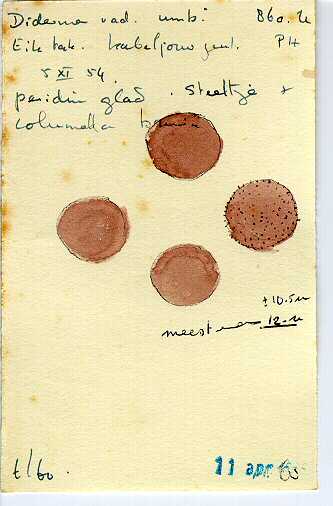 Diderma rad. umb. B60. U
Eik tak. Kabeljouw gent. PH
5 XI 54.
peridin glad. Steeltje +
columella bruin
± 10.5 u
meest 12 u
t/60.
11 apr 60